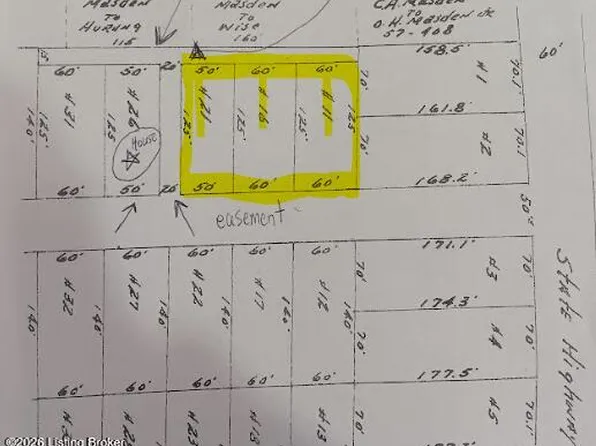 Masden
TO
Hurung
115
Masden
TO
Wise
160
C.A. Masden
TO
O.H. Masden Jr
57-408
158.5'
60'
15'
60'
50'
20'
50'
60'
60'
70'
#1
70.1'
140'
125'
#31
125'
#26
House
125'
#21
125'
#16
125'
#11
125'
161.8'
70'
#2
70.1
60'
50'
20'
50'
60'
60'
168.2'
50'
easement
60'
60'
60'
60'
60'
171.1'
70'
#3
70'
140'
#32
140'
#27
140'
#22
140'
#17
140'
#12
140'
174.3'
70'
#4
70'
60'
60'
60'
60'
60'
177.5'
State Highway
70'
#5
70.1
#23
#18
#13
©2026 Listing Broker